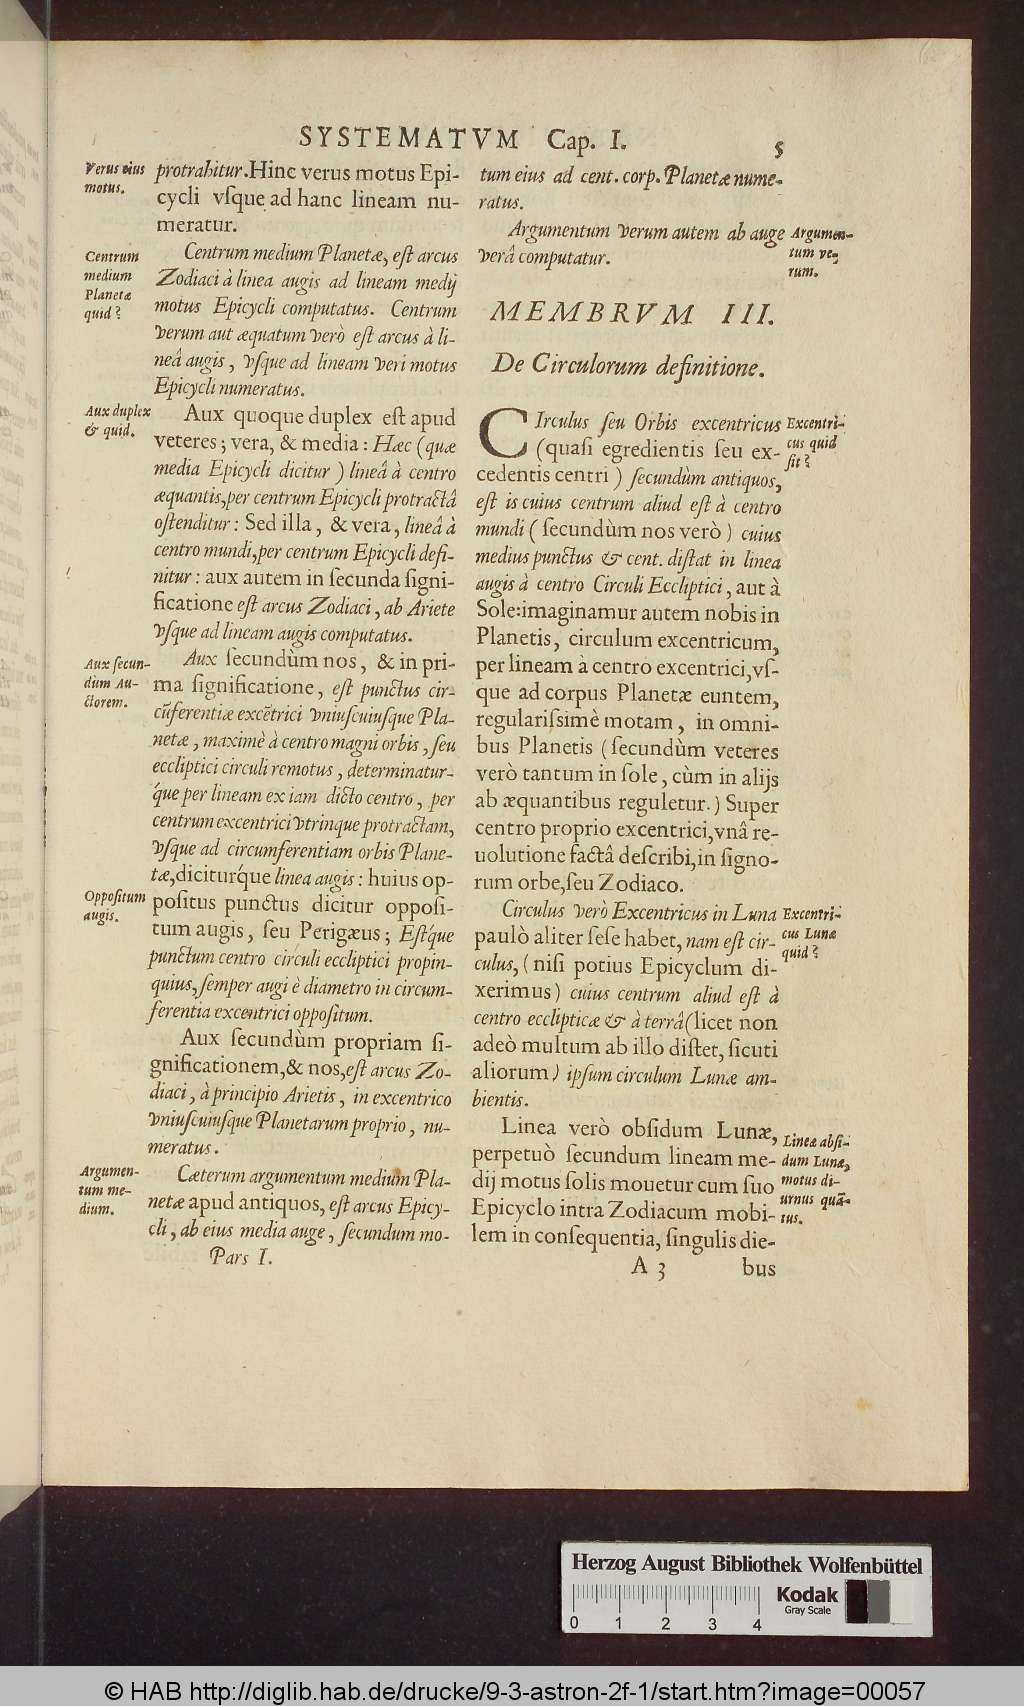 SYSTEMATVM Cap. I. 5
Verus eius
motus.
protrahitur. Hinc verus motus Epi-
cycli vſque ad hanc lineam nu-
meratur.
Centrum
medium
Planetæ
quid?
Centrum medium Planetæ, eſt arcus
Zodiaci à linea augis ad lineam medij
motus Epicycli computatus. Centrum
verum aut æquatum verò eſt arcus à li-
neâ augis, vſque ad lineam veri motus
Epicycli numeratus.
Aux duplex
& quid.
Aux quoque duplex eſt apud
veteres; vera, & media: Hæc (quæ
media Epicycli dicitur) lineâ à centro
æquantis, per centrum Epicycli protractâ
oſtenditur: Sed illa, & vera, lineâ à
centro mundi, per centrum Epicycli defi-
nitur: aux autem in ſecunda ſigni-
ficatione eſt arcus Zodiaci, ab Ariete
vſque ad lineam augis computatus.
Aux ſecun-
dùm Au-
ctorem.
Aux ſecundùm nos, & in pri-
ma ſignificatione, eſt punctus cir-
cũferentiæ excẽtrici vniuſcuiuſque Pla-
netæ, maximè à centro magni orbis, ſeu
eccliptici circuli remotus, determinatur-
q́ue per lineam ex iam dicto centro, per
centrum excentrici vtrinque protractam,
vſque ad circumferentiam orbis Plane-
tæ, diciturq́ue linea augis: huius op-
Oppoſitum
augis.
poſitus punctus dicitur oppoſi-
tum augis, ſeu Perigæus; Eſtq́ue
punctum centro circuli eccliptici propin-
quius, ſemper augi è diametro in circum-
ferentia excentrici oppoſitum.
Aux ſecundùm propriam ſi-
gnificationem, & nos, eſt arcus Zo-
diaci, à principio Arietis, in excentrico
vniuſcuiuſque Planetarum proprio, nu-
meratus.
Argumen-
tum me-
dium.
Cæterum argumentum medium Pla-
netæ apud antiquos, eſt arcus Epicy-
cli, ab eius media auge, ſecundum mo-
Pars I.
tum eius ad cent. corp. Planetæ nume-
ratus.
Argumentum verum autem ab auge
verâ computatur.
Argumen-
tum ve-
rum.
MEMBRVM III.
De Circulorum definitione.
CIrculus ſeu Orbis excentricus
(quaſi egredientis ſeu ex-
cedentis centri) ſecundùm antiquos,
eſt is cuius centrum aliud eſt à centro
mundi (ſecundùm nos verò) cuius
medius punctus & cent. diſtat in linea
augis à centro Circuli Eccliptici, aut à
Sole: imaginamur autem nobis in
Planetis, circulum excentricum,
per lineam à centro excentrici, vſ-
que ad corpus Planetæ euntem,
regulariſſimè motam, in omni-
bus Planetis (ſecundùm veteres
verò tantum in ſole, cùm in alijs
ab æquantibus reguletur.) Super
centro proprio excentrici, vnâ re-
uolutione factâ deſcribi, in ſigno-
rum orbe, ſeu Zodiaco.
Excentri-
cus quid
ſit?
Circulus verò Excentricus in Luna
paulò aliter ſeſe habet, nam eſt cir-
culus, (niſi potius Epicyclum di-
xerimus) cuius centrum aliud eſt à
centro eclipticæ & à terrâ (licet non
adeò multum ab illo diſtet, ſicuti
aliorum) ipſum circulum Lunæ am-
bientis.
Excentri-
cus Lunæ
quid?
Linea verò obſidum Lunæ,
perpetuò ſecundum lineam me-
dij motus ſolis mouetur cum ſuo
Epicyclo intra Zodiacum mobi-
lem in conſequentia, ſingulis die-
Lineæ abſi-
dum Lunæ,
motus di-
urnus quã-
tus.
A 3 bus
Herzog August Bibliothek Wolfenbüttel
Kodak
Gray Scale
0 1 2 3 4
© HAB http://diglib.hab.de/drucke/9-3-astron-2f-1/start.htm?image=00057